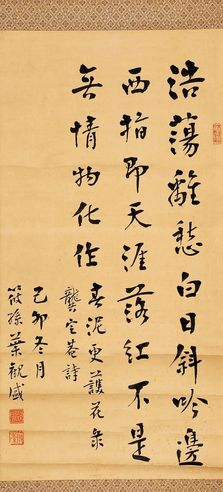 浩蕩離愁白日斜吟邊
西指即天涯落紅不是
無情物化作
春泥更護花录
龔定菴詩
己卯冬月
筱孫葉觀盛